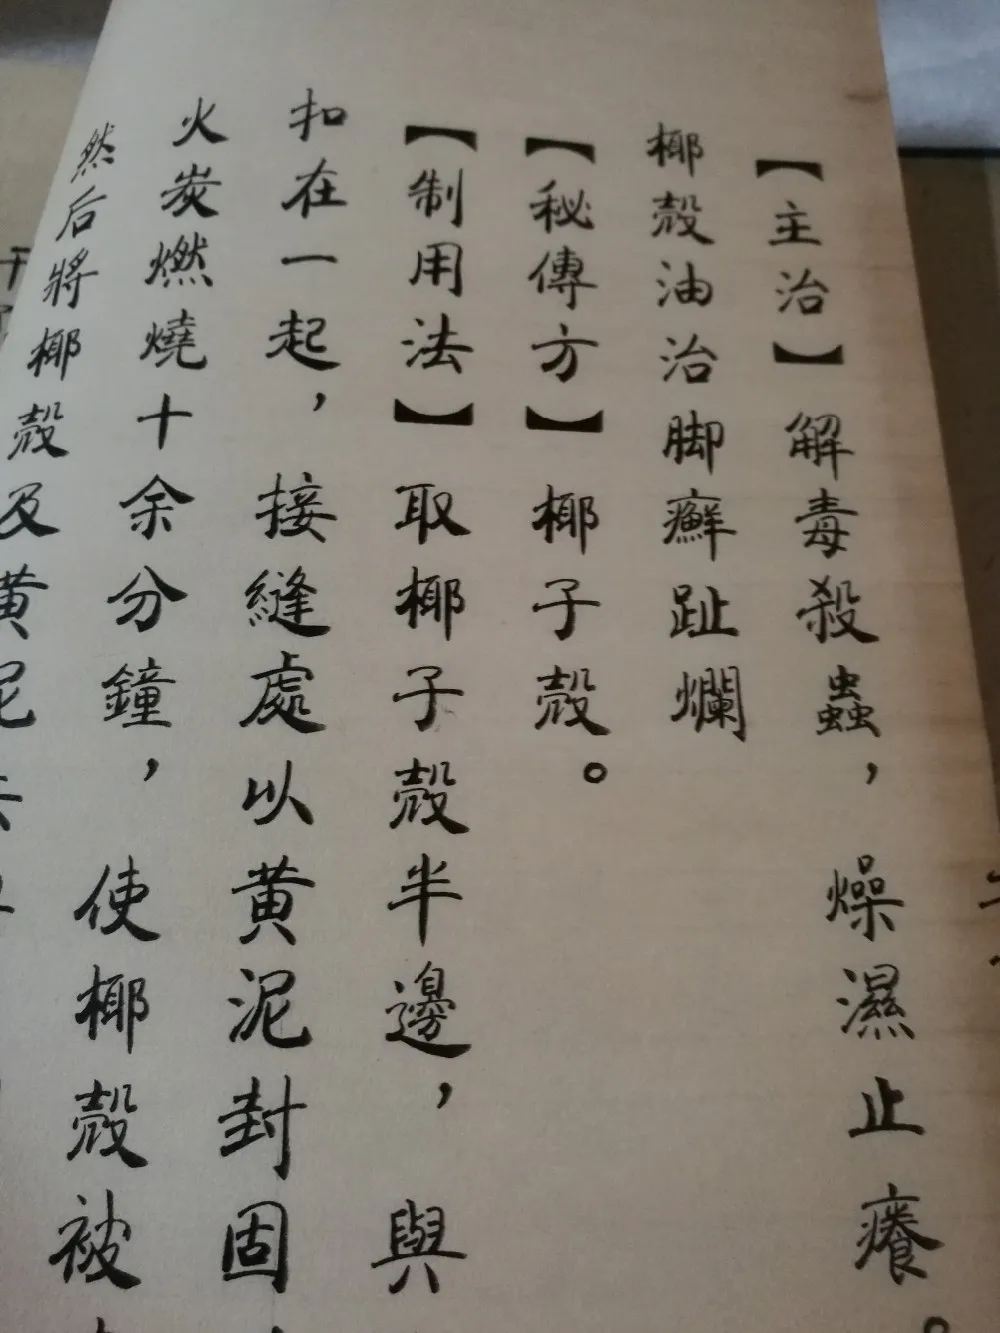 【主治】解毒殺蟲，燥濕止癢。
椰殼油治脚癬趾爛
【秘傳方】椰子殼。
【制用法】取椰子殼半邊，與
扣在一起，接縫處以黃泥封固
火炭燃燒十余分鐘，使椰殼被
然后將椰殼及黃泥